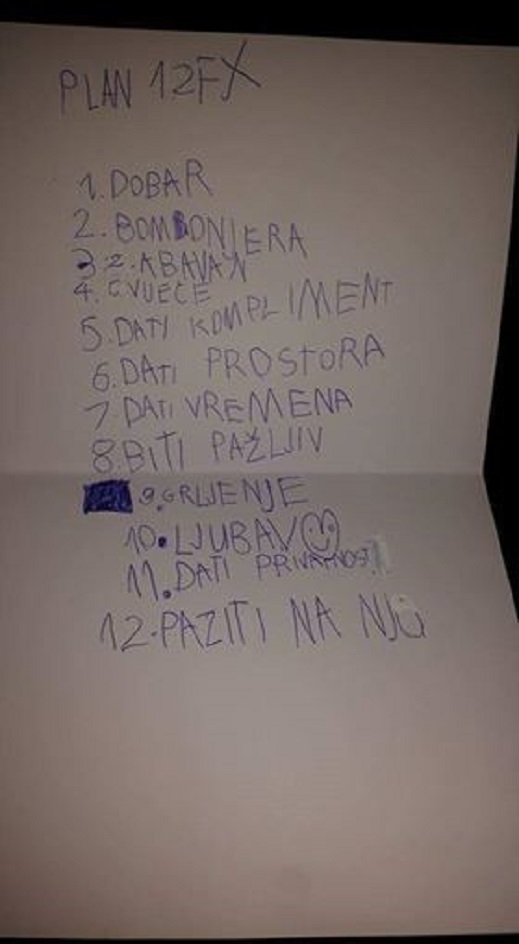 PLAN 12FX
1. DOBAR
2. BOMBONIERA
3 Z.ABAVAN
4. CVUEĆE
5. DATI KOMPLIMENT
6. DATI PROSTORA
7 DATI VREMENA
8. BITI PAŽLJIV
9. GRLJENJE
10. LJUBAV
11. DATI PRIVATNOST
12. PAZITI NA NJU